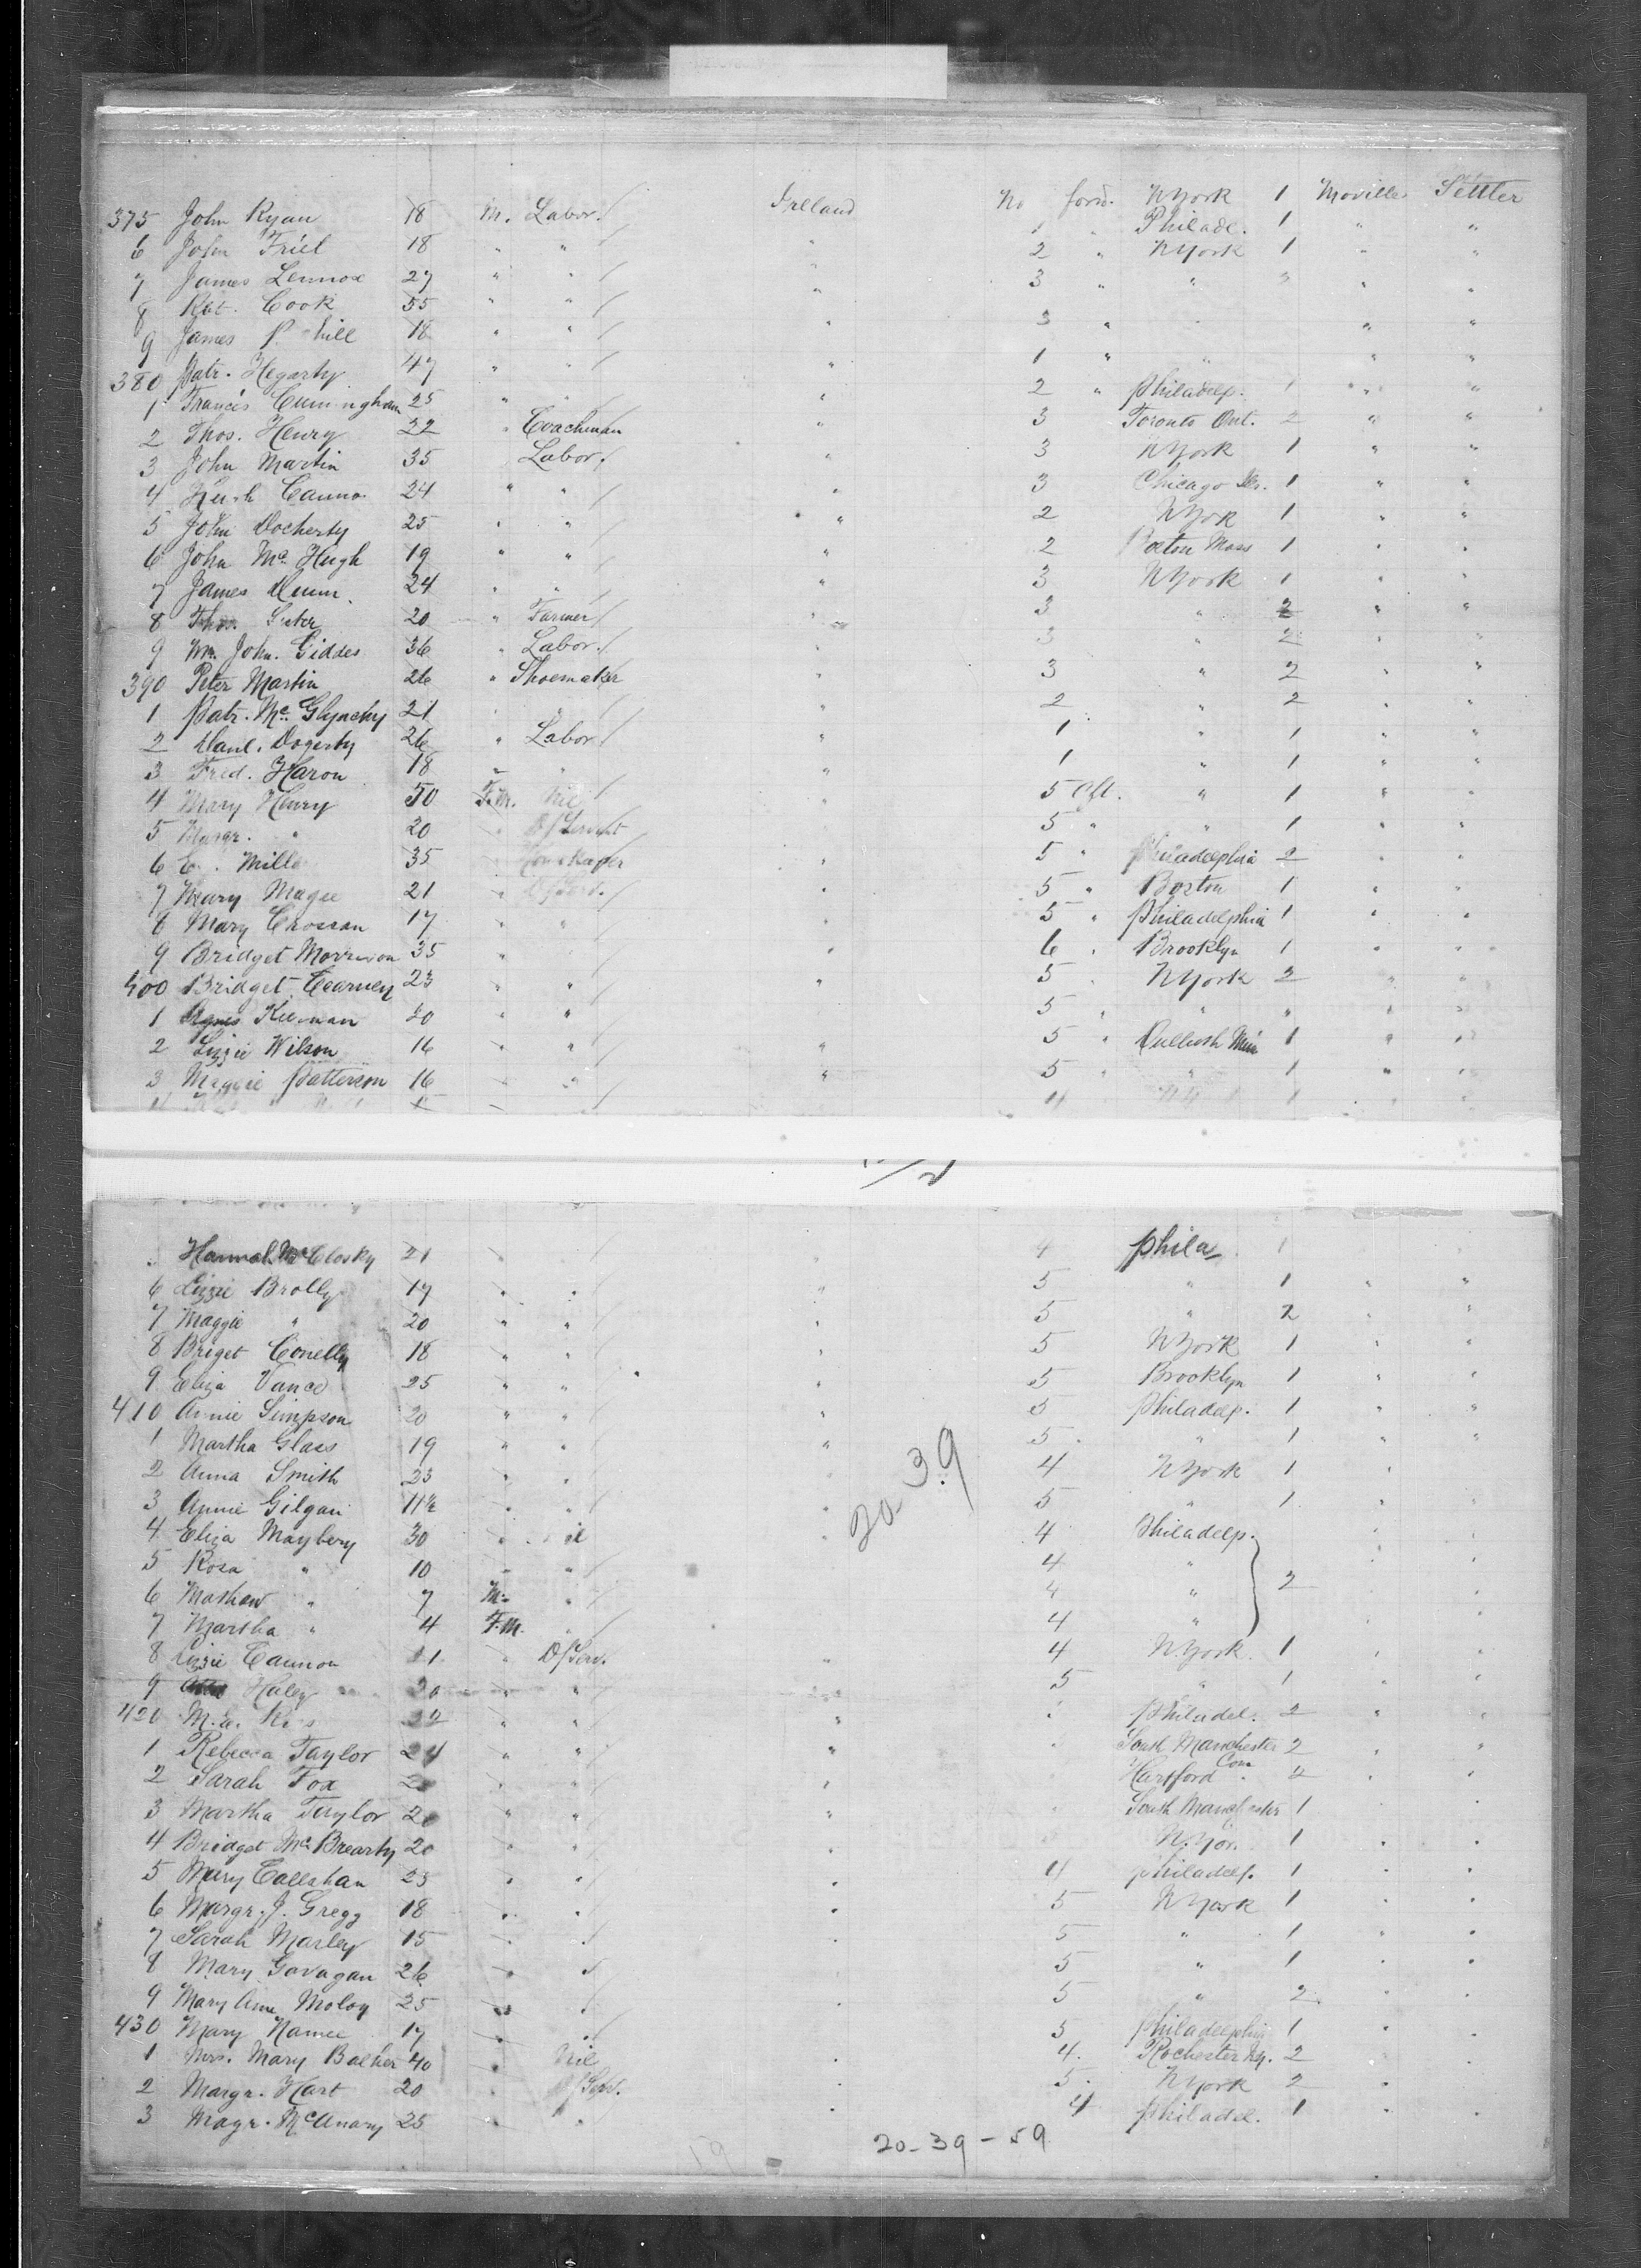 375 John Ryan 18 M. Labor. Ireland No ford. NYork 1 Moville Settler
6 John Friel 18 " " " 1 " Philade. 1 " "
7 James Lennox 27 " " " 2 " NYork 1 " "
8 Rbt. Cook 55 " " " 3 " " 3 " "
9 James hill 18 " " " 3 " " " "
380 Patr. Hegarty 47 " " " 1 " " " "
1 Francis Cuningham 25 " " " 2 " Philadelp. 1 " "
2 Thos. Henry 22 " Coachman " 3 Toronto Ont. 2 " "
3 John Martin 35 Labor. " 3 NYork 1 " "
4 Hugh Canno 24 " " " 3 Chicago Ills. 1 " "
5 John Docherty 25 " " " 2 NYork 1 " "
6 John Mc Hugh 19 " " " 2 Boston Mass 1 " "
7 James Dunn. 24 " " " 3 NYork 1 " "
8 Thos. 20 " Farmer " 3 " 2 " "
9 Mr. John. Giddes 36 " Labor. " 3 " 2 " "
390 Peter Martin 26 " Shoemaker " 3 " 2 " "
1 Patr. Mc Glynchy 21 " " " 2 " 2 " "
2 Danl. Dogerty 26 " Labor " 1 " 1 " "
3 Fred. Haron 18 " " " 1 " 1 " "
4 Mary Henry 50 F.M. Nil " 5 Aft. " 1 " "
5 Margr. " 20 " D/Servant 5 " " 1 " "
6 Mill 35 " " 5 " Philadelphia 2 " "
7 Mary Magee 21 " D/Serv. " 5 " Boston 1 " "
8 Mary Crossan 17 " " " 5 " Philadelphia 1 " "
9 Bridget Morrison 35 " " 6 " Brooklyn 1 " "
400 Bridget Cearney 23 " " " 5 " NYork 2 " "
1 Agnes Kiernan 20 " " 5 " " " " "
2 Lizzie Wilson 16 " " " 5 " Dulluth Min 1 " "
3 Maggie Patterson 16 " " " 5 " " 1 " "
Hannah Mc Closky 21 " " 4 Phila 1
6 Lizzie Brolly 17 " " " 5 " 1 " "
7 Maggie " 20 " " " 5 " 2 " "
8 Briget Conelly 18 " " " 5 NYork 1 " "
9 Eliza Vance 25 " " " 5 Brooklyn 1 " "
410 Annie Simpson 20 " " " 5 Philadelp. 1 " "
1 Martha Glass 19 " " " 5 " 1 " "
2 Anna Smith 23 " " 4 NYork 1 "
3 Annie Gilgan 11½ " " " 5 " 1 " "
20 39
4 Eliza Maybery 30 " " 4 Philadelp. " "
5 Rosa " 10 " " 4 " " "
6 Mathew " 7 M. " 4 " 2
7 Martha " 4 F.M. " 4 " " "
8 Lizzie Cannon 21 " D/Serv. " 4 N.York. 1 " "
9 Haley 20 " " 5 " 1 " "
420 22 " " " Philadel. 2 " "
1 Rebecca Taylor 24 " " " South Manchester 2 " "
Con
2 Sarah Fox " " " Hartford " " "
3 Martha Taylor 20 " " " South Manchester 1 " "
4 Bridget Mc Brearty 20 " " " N.Yor. 1 " "
5 Mary Callahan 23 " " " 4 Philadelp. 1 " "
6 Margr. J. Gregg 18 " " " 5 NYork 1 " "
7 Sarah Marley 15 " " " 5 " 1 " "
8 Mary Gavagan 26 " " 5 " 1 " "
9 Mary Ann Moloy 25 " " " 5 " 2 " "
430 Mary Namee 17 " " 5 Philadelphia 1 " "
1 Mrs. Mary Balher 40 " Nil " 4. Rochester Ny. 2 "
2 Margr. Hart 20 " D/Serv. " 5. NYork 2 "
3 Magr. McAnany 25 " " " 4 Philadel. 1 " "
20-39-59